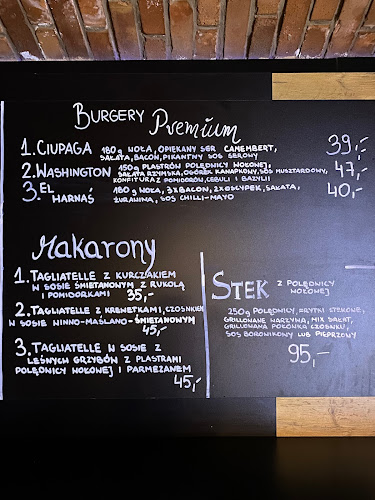 BURGERY Premium
1. CIUPAGA 180g WOŁA, OPIEKANY SER CAMEMBERT, 39,-
SAŁATA, BACON, PIKANTNY SOS SEROWY
2. WASHINGTON 150g PLASTRÓW POLĘDWICY WOŁOWEJ, 47,-
SAŁATA RZYMSKA, OGÓREK KANAPKOWY, SOS MUSZTARDOWY,
KONFITURA Z POMIDORÓW, CEBULI I BAZYLII
3. EL HARNAŚ 180g WOŁA, 3xBACON, 2xOSCYPEK, SAŁATA, 40,-
ŻURAWINA, SOS CHILLI-MAYO
Makarony
1. TAGLIATELLE Z KURCZAKIEM
W SOSIE ŚMIETANOWYM Z RUKOLĄ
I POMIDORKAMI 35,-
2. TAGLIATELLE Z KREWETKAMI, CZOSNKIEM
W SOSIE WINNO-MAŚLANO-ŚMIETANOWYM
45,-
3. TAGLIATELLE W SOSIE Z
LEŚNYCH GRZYBÓW Z PLASTRAMI
POLĘDWICY WOŁOWEJ I PARMEZANEM
45,-
STEK Z POLĘDWICY
WOŁOWEJ
250g POLĘDWICY, FRYTKI STEKOWE,
GRILLOWANE WARZYWA, MIX SAŁAT,
GRILLOWANA POŁÓWKA CZOSNKU,
SOS BOROWIKOWY LUB PIEPRZOWY
95,-